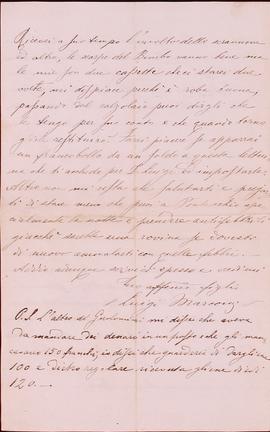 Ricevei a suo tempo l'involto dello scannone
ed altro, le scarpe del Bimbo vanno bene ma
le mie son due cassette che ci starei due
volte, mi dispiace perchè è roba buona,
passando dal calzolaio puoi dirgli che
le tengo per suo conto e che quando torno
gliele restituirò. Farai piacere se apporrai
un francobollo da un soldo a questa lettera
ma che ti accludo per I. Luigi ed impostarla.
Altro non mi resta che salutarti e pregarti
di stare meno che puoi a
specialmente la notte e prendere antifebbrili
giacchè sarebbe una rovina se dovesti
di nuovo ammalarti con quelle febbri.
Addio adunque scrivici spesso e credimi
Tuo affmo figlio
Luigi
P.S. L'altro dì mi disse che aveva
da mandare dei denari in un posto e che gli man
cavano 150 franchi; io dissi che guardassi di fargliene
100 e dietro regolare ricevuta gliene diedi
120. -